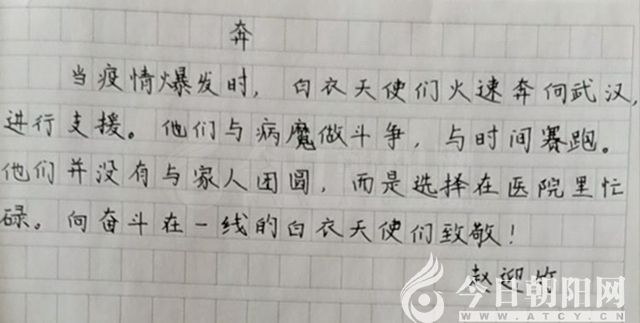 奔
当疫情爆发时，白衣天使们火速奔向武汉，
进行支援。他们与病魔做斗争，与时间赛跑。
他们并没有与家人团圆，而是选择在医院里忙
碌。向奋斗在一线的白衣天使们致敬！
赵迎竹
今日朝阳网
WWW.ATCY.CN